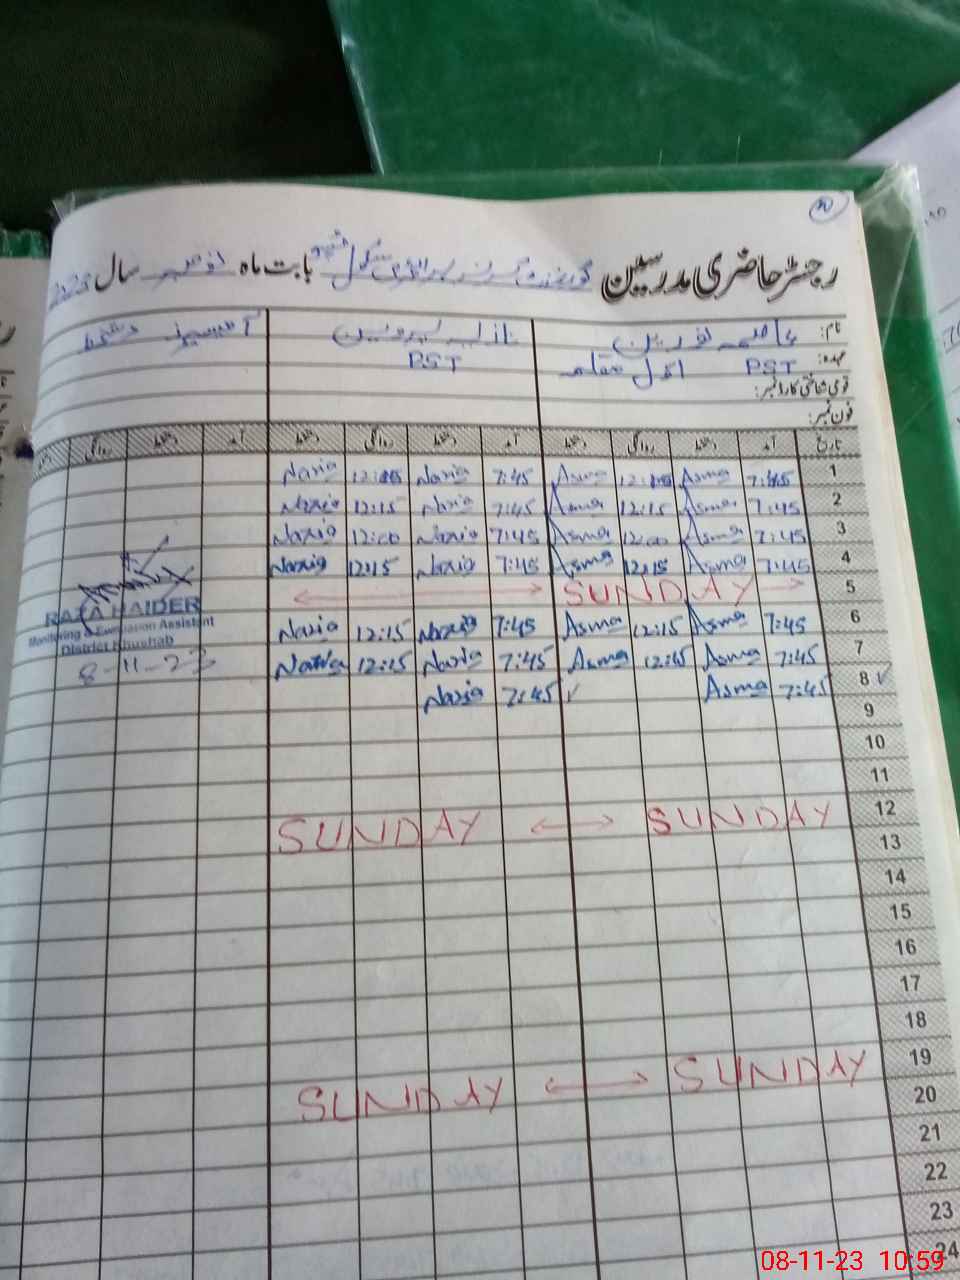 رجسٹر حاضری مدرسین گورنمنٹ گرلز پرائمری سکول بابت ماہ نومبر سال 2023
نام: عاصمہ نورین نازیہ پروین آفیسرز وزٹ
عہدہ: PST PST
قومی شناختی کارڈ نمبر:
فون نمبر:
تاریخ آمد دستخط روانگی دستخط آمد دستخط روانگی دستخط آمد دستخط روانگی
1 7:45 Asma Asma 7:45 Nazia Nazia
2 7:45 Asma 12:15 Asma 7:45 Nazia 12:15 Nazia
3 7:45 Asma 12:00 Asma 7:45 Nazia 12:00 Nazia
4 7:45 Asma 12:15 Asma 7:45 Nazia 12:15 Nazia
5 SUNDAY
6 7:45 Asma 12:15 Asma 7:45 Nazia 12:15 Nazia
7 7:45 Asma 12:15 Asma 7:45 Nazia 12:15 Nazia
8 7:45 Asma 7:45 Nazia
9
10
11
12 SUNDAY SUNDAY
13
14
15
16
17
18
19 SUNDAY SUNDAY
20
21
22
23
24
RAZA HAIDER
Monitoring & Evaluation Assistant
District Khushab
8-11-23
08-11-23 10:59